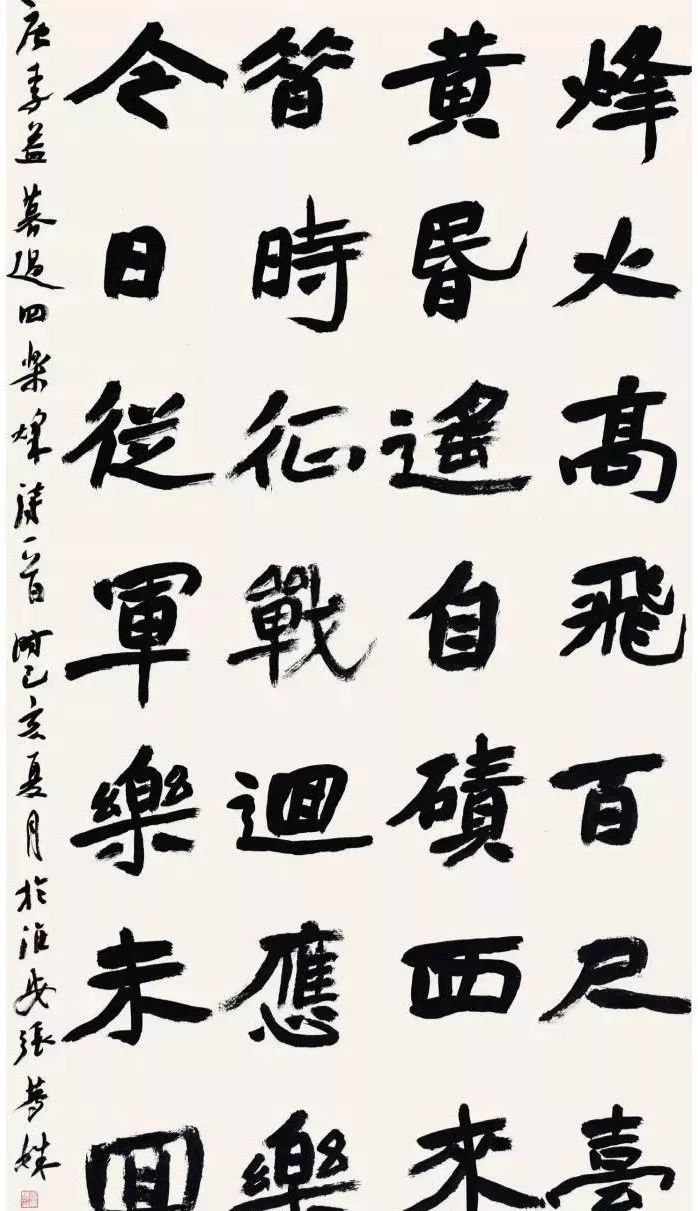 烽火高飛百尺臺
黄昬遙自磧西來
昔時征戰迴應樂
今日從軍樂未回
唐李益暮過回樂烽詩一首时己亥夏月於淮安張夢姝